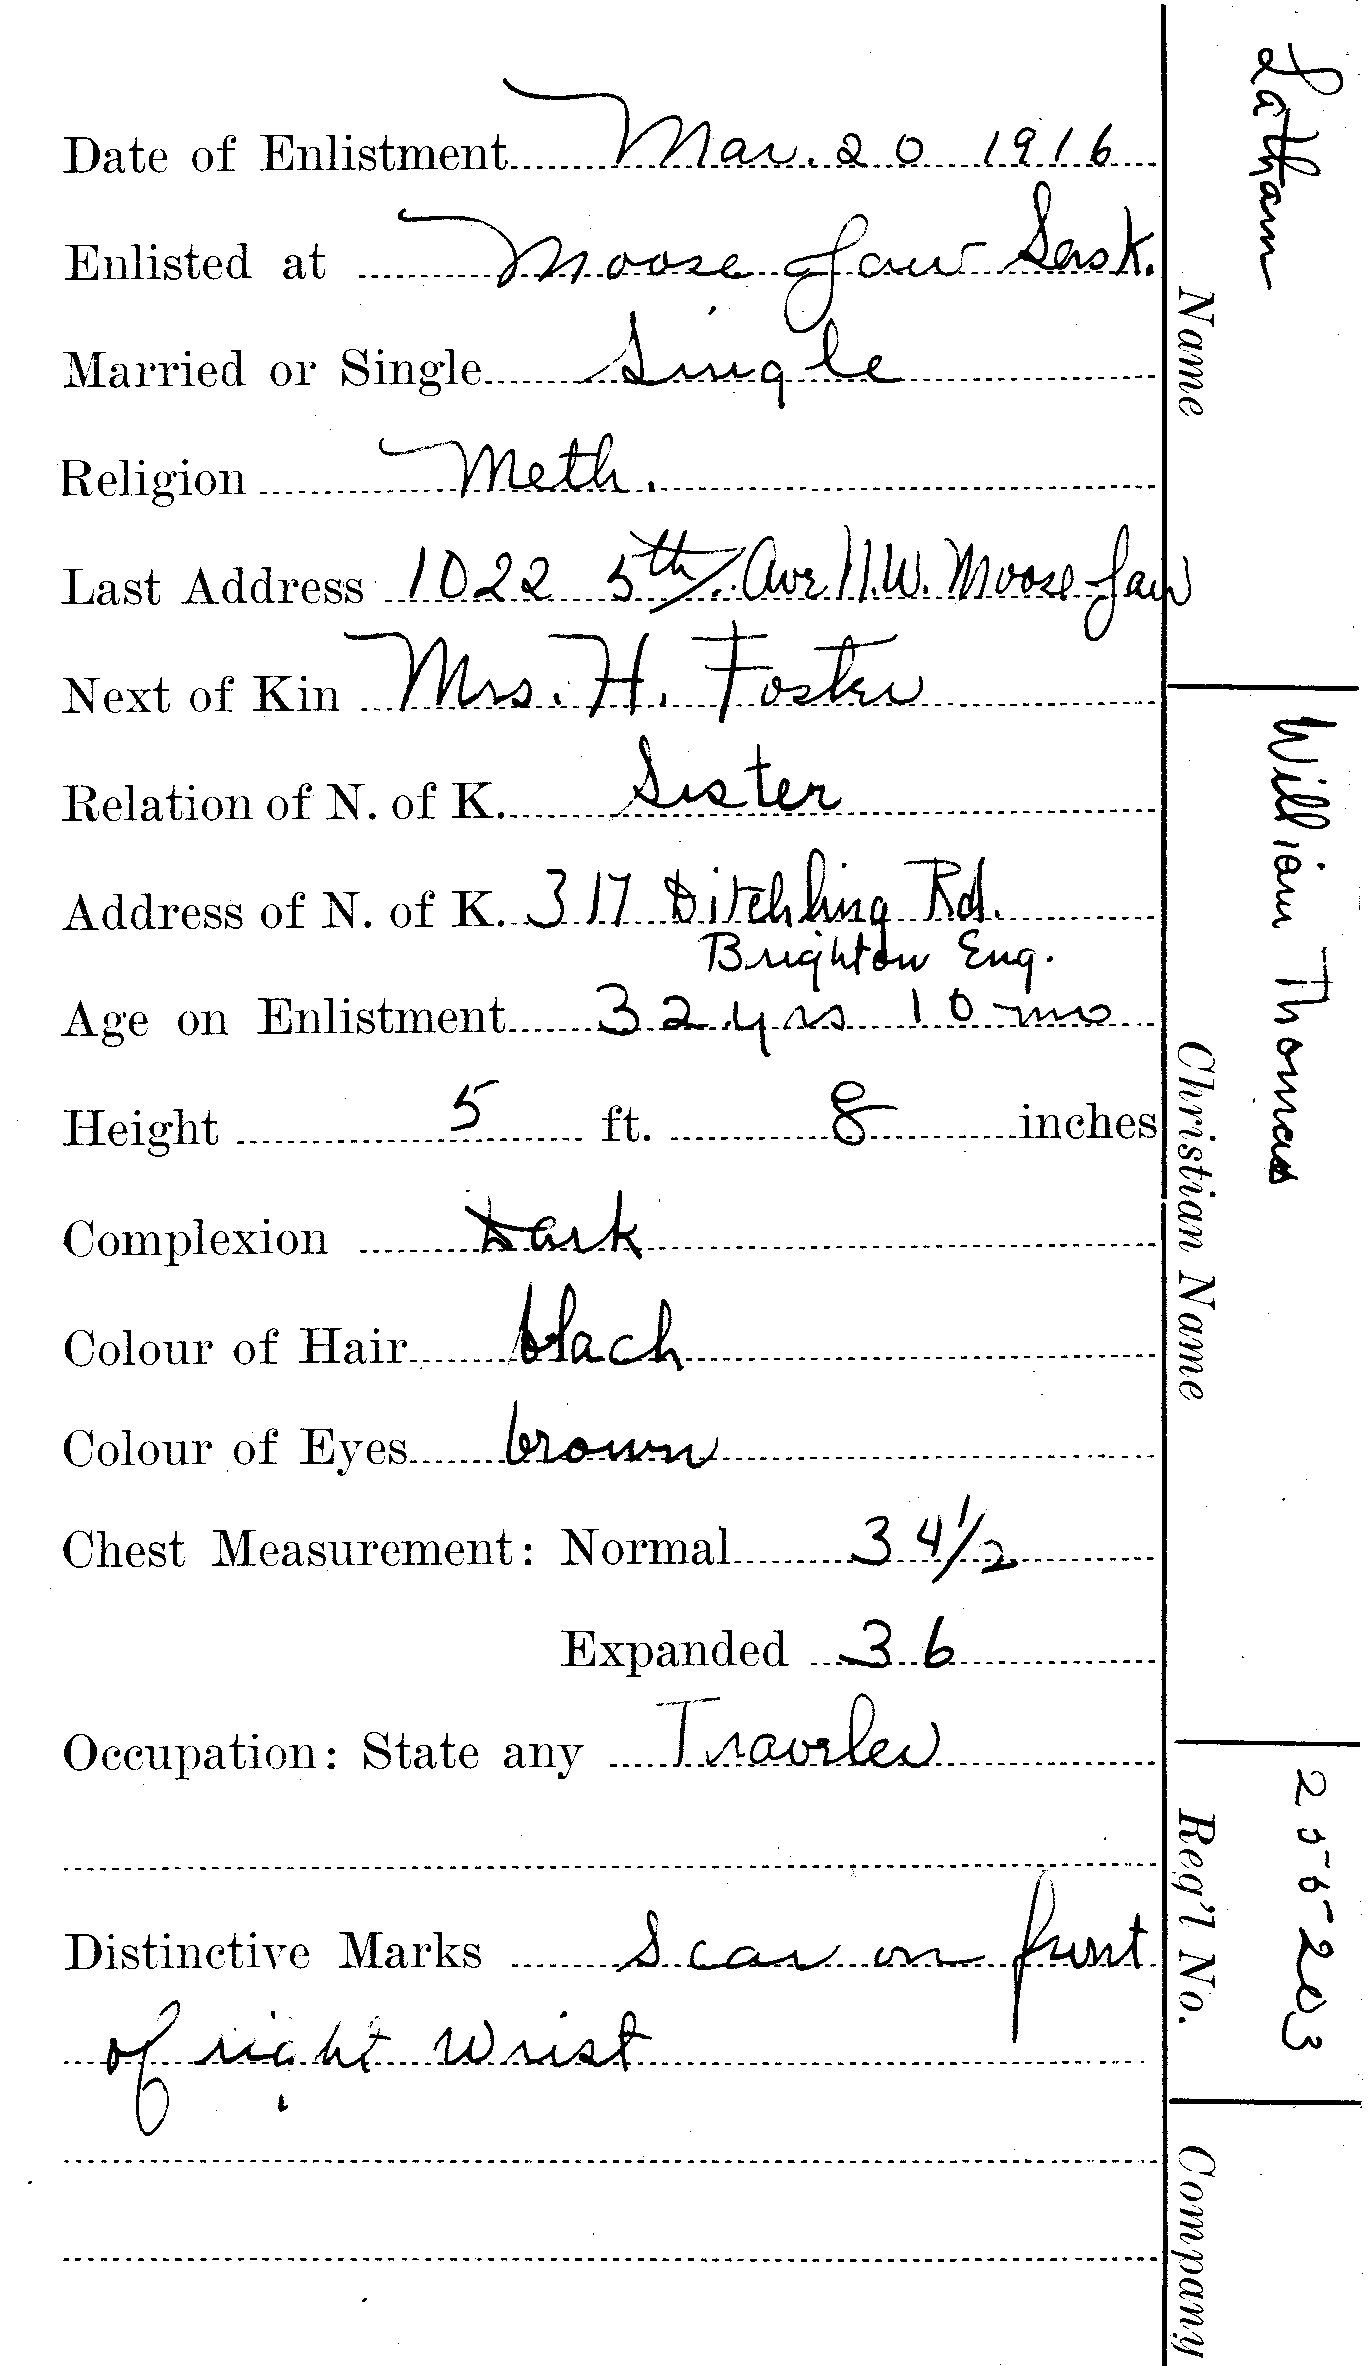 Date of Enlistment Mar. 20 1916
Enlisted at Moose Jaw Sask.
Married or Single Single
Religion Meth.
Last Address 1022 5th Ave N.W. Moose Jaw
Next of Kin Mrs. H. Foster
Relation of N. of K. Sister
Address of N. of K. 317 Ditchling Rd.
Brighton Eng.
Age on Enlistment 32 yrs 10 mo
Height 5 ft. 8 inches
Complexion Dark
Colour of Hair black
Colour of Eyes brown
Chest Measurement: Normal 34 1/2
Expanded 36
Occupation: State any Traveler
Distinctive Marks Scar on front
of right wrist
Latham
Name
William Thomas
Christian Name
255203
Reg'l No.
Company